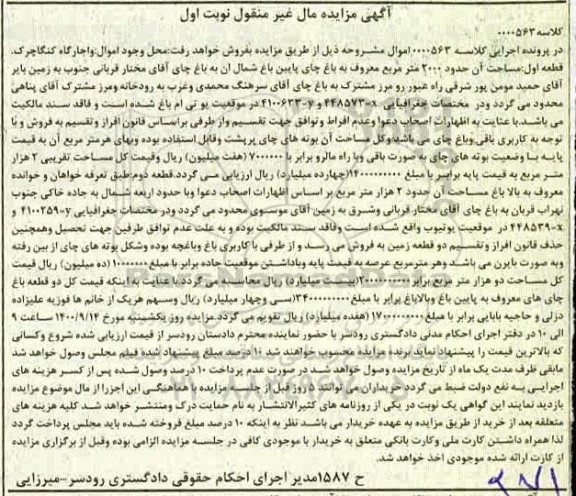 آگهی مزایده مال غیر منقول نوبت اول
کلاسه ۰۰۰۰۵۶۳
در پرونده اجرایی کلاسه ۰۰۰۰۵۶۳ اموال مشروحه ذیل از طریق مزایده بفروش خواهد رفت: محل وجود اموال: واجارگاه کنگاچرک.
قطعه اول: مساحت آن حدود ۲۰۰۰ متر مربع معروف به باغ چای پایین باغ شمال ان به باغ چای آقای مختار قربانی جنوب به زمین بایر
آقای حمید مومن پور شرقی راه عبور رو مرز مشترک به باغ چای آقای سرهنگ محمدی وغرب به رودخانه ومرز مشترک آقای پناهی
محدود می گردد ودر مختصات جغرافیایی x-۴۴۸۵۷۳ و y-۴۱۰۰۶۳۳ در موقعیت یو تی ام باغ شده است و فاقد سند مالکیت
می باشد.با عنایت به اظهارات اصحاب دعوا وعدم افراط وتوافق جهت تقسیم واز طرفی براساس قانون افراز وتقسیم به فروش و با
توجه به کاربری باقی وباغ چای می باشد وکل مساحت آن بوته های چای پرپشت وقابل استفاده بوده وبهای هرمتر مربع آن به قیمت
پایه با وضعیت بوته های چای به صورت باقی وبا راه مالرو برابر با ۷۰۰۰۰۰۰ (هفت میلیون) ریال وقیمت کل مساحت تقریبی ۲ هزار
متر مربع به قیمت پایه برابر با مبلغ ۱۴۰۰۰۰۰۰۰۰۰(چهارده میلیارد) ریال ارزیابی می گردد.قطعه دوم:طبق تعرفه خواهان و خوانده
معروف به بالا باغ مساحت آن حدود ۲ هزار متر مربع بر اساس اظهارات اصحاب دعوا وبا حدود اربعه شمال به جاده خاکی جنوب
نهراب قربان به باغ چای آقای مختار قربانی وشرق به زمین آقای موسوی محدود می گردد ودر مختصات جغرافیایی y-۴۱۰۰۲۵۹ و
x-۴۴۸۵۳۹ در موقعیت یوتیوب واقع شده است وفاقد سند مالکیت بوده و به علت عدم توافق طرفین جهت تحصیل وهمچنین
حذف قانون افراز وتقسیم دو قطعه زمین به فروش می رسد و از طرفی با کاربری باغ وباغچه بوده وشکل بوته های چای از بین رفته
وبه صورت بایرن می باشد وهر مترمربع عرصه به قیمت پایه وباداشتن موقعیت جاده برابر با مبلغ ۱۰۰۰۰۰۰۰ (ده میلیون) ریال قیمت
کل مساحت دو هزار متر مربع برابر ۲۰۰۰۰۰۰۰۰۰۰ (بیست میلیارد) ریال محاسبه می گردد.با عنایت به اینکه قیمت کل دو قطعه باغ
چای های معروف به پایین باغ وبالاباغ برابر با مبلغ ۳۴۰۰۰۰۰۰۰۰۰(سی وچهار میلیارد) ریال وسهم هریک از خانم ها فوزیه علیزاده
دزلی و حاجیه بابایی برابر با مبلغ ۱۷۰۰۰۰۰۰۰۰۰ (هفده میلیارد) ریال تقویم می گردد.مزایده روز یکشنبه مورخ ۱۴۰۰/۹/۱۴ ساعت ۹
الی ۱۰ در دفتر اجرای احکام مدنی دادگستری رودسر با حضور نماینده محترم دادستان رودسر از قیمت ارزیابی شده شروع وکسانی
که بالاترین قیمت را پیشنهاد نماید برنده مزایده محسوب خواهند شد ۱۰ درصد مبلغ پیشنهاد شده فیلم مجلس وصول خواهد شد
مابقی ظرف مدت یک ماه از تاریخ مزایده وصول خواهد شد در صورت عدم پرداخت ۱۰ درصد وصول شده پس از کسر هزینه های
اجرایی به نفع دولت ضبط می گردد خریداران می توانند ۵ روز قبل از جلسه مزایده با هماهنگی این اجزرا از مال موضوع مزایده
بازدید نمایند این گواهی یک نوبت در یکی از روزنامه های کثیرالانتشار به نام حمایت درک ومنتشر خواهد شد کلیه هزینه های
متعلقه بعد از خرید از طریق مزایده به عهده خریدار می باشد نظر به اینکه ۱۰ درصد مبلغ فروخته شده باید مجلس پرداخت گردد
لذا همراه داشتن کارت ملی وکارت بانکی متعلق به خریدار با موجودی کافی در جلسه مزایده الزامی بوده وقبل از برگزاری مزایده
از کارت ارائه شده موجودی اخذ خواهد شد.
ح ۱۵۸۷ مدیر اجرای احکام حقوقی دادگستری رودسر-میرزایی